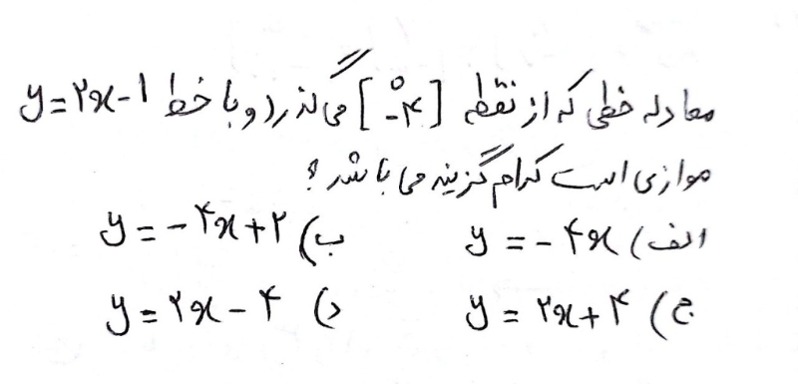 معادله خطی که از نقطه [۰ -۴] می گذرد و با خط y=۲x-۱
موازی است کدام گزینه می باشد ؟
الف) y = -۴x ب) y = -۴x+۲
ج) y = ۲x+۴ د) y = ۲x-۴